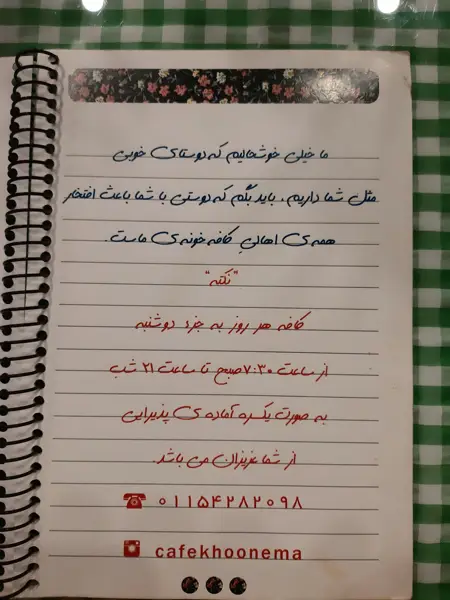 ما خیلی خوشحالیم که دوستای خوبی
مثل شما داریم، باید بگم که دوستی با شما باعث افتخار
همه‌ی اهالی کافه خونه‌ی ماست.
"نکته"
کافه هر روز به جزء دوشنبه
از ساعت ۷:۳۰ صبح تا ساعت ۲۱ شب
به صورت یکسره آماده‌ی پذیرایی
از شما عزیزان می باشد.
۰۱۱۵۴۲۸۲۰۹۸
cafekhoonema